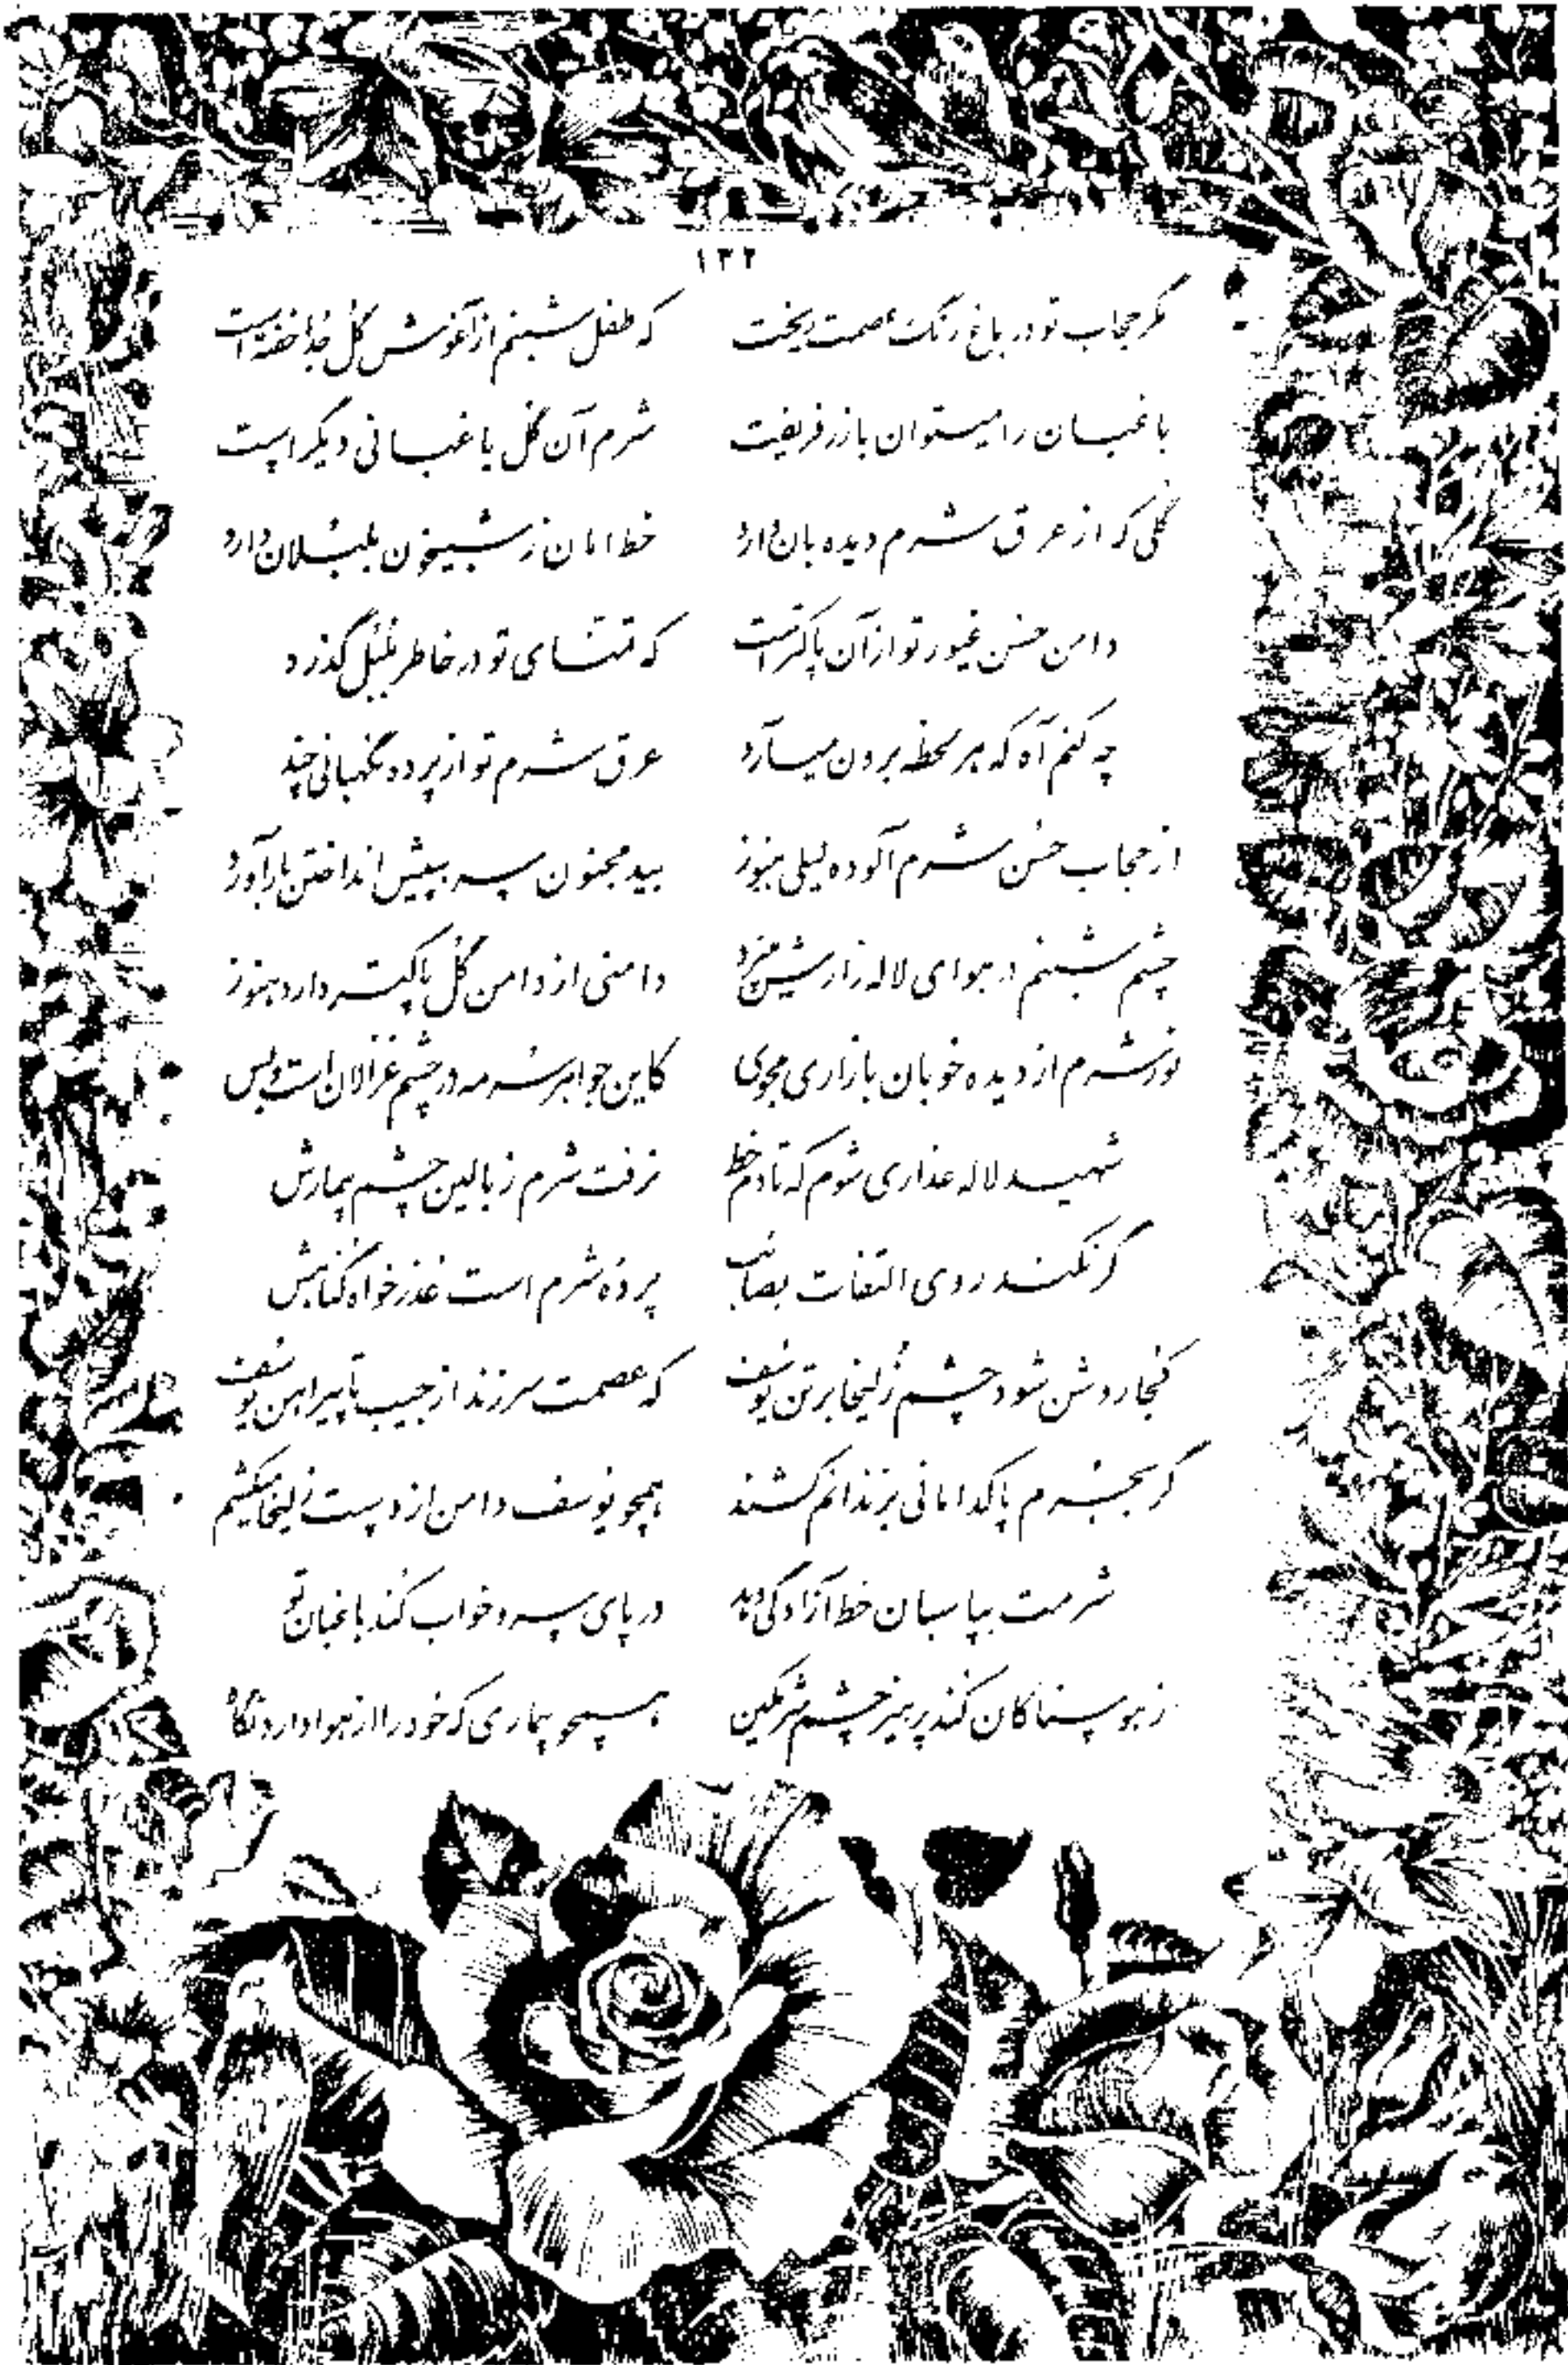 ۱۳۲
مگر حجاب تو در باغ رنگ عصمت ریخت که طفل شبنم از آغوش گل جدا خفته است
باغبان را میتوان با زر فریفت شرم آن گل باغبانی دیگر است
گلی که از عرق شرم دیده بان دارد خط امان ز شبیخون بلبلان دارد
دامن حسن غیور تو از آن پاکتر است که تمنای تو در خاطر بلبل گذرد
چه کنم آه که هر لحظه برون میآرد عرق شرم تو از پرده نگهبانی چند
از حجاب حسن شرم آلوده لیلی هنوز بید مجنون سر بپیش انداختن بار آورد
چشم شبنم در هوای لاله زارش میپرد دامنی از دامن گل پاکتر دارد هنوز
نور شرم از دیده خوبان بازاری مجوی کاین جواهر سرمه در چشم غزالان است و بس
شهید لاله عذاری شوم که تا دم خط نرفت شرم ز بالین چشم بیمارش
گر نکند روی التفات بصائب پرده شرم است عذر خواه گناهش
کجا روشن شود چشم زلیخا بر تن یوسف که عصمت سر زند از جیب تا پیراهن یوسف
گر بجرم پاکدامانی بزندانم کشند همچو یوسف دامن از دست زلیخا میکشم
شرمت بپاسبان خط آزادگی دهد در پای سرو خواب کند باغبان تو
ز هوسناکان کند پرهیز چشم شرمگین همچو بیماری که خود را از هوا دارد نگاه